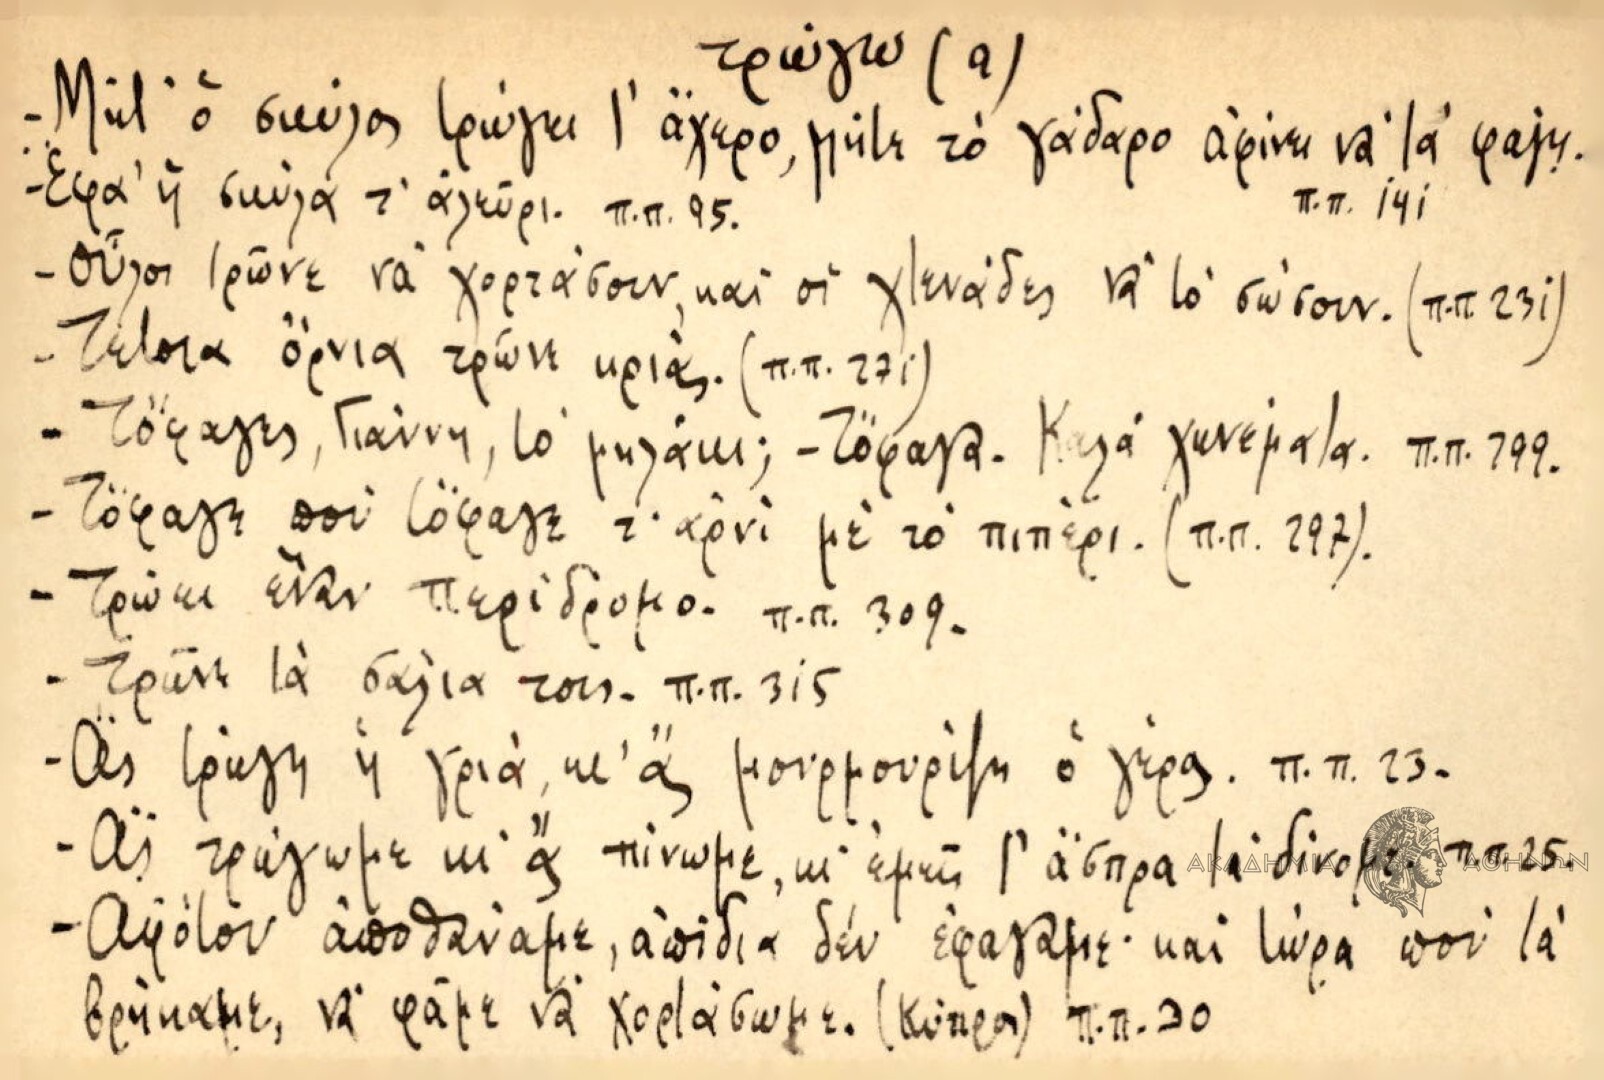 τρώγω (α)
- Μήτ' ὁ σκύλος τρώγει τ' ἄχερο, μήτε τὸ γάδαρο ἀφίνει νὰ τὰ φάγῃ.
- Ἔφα' ἡ σκύλα τ' ἀλεῦρι. π.π. 95. π.π. 141
- Οὗλοι τρῶνε νὰ χορτάσουν, καὶ οἱ χτενάδες νὰ τὸ σώσουν. (π.π 231)
- Τέτοια ὄρνια τρῶνε κριάς. (π.π. 271)
- Τὄφαγες, Γιάννη, τὸ μηλάκι; - Τὄφαγα. Καλὰ χωνέματα. π.π. 299.
- Τὄφαγε ποὺ τὄφαγε τ' ἀρνὶ μὲ τὸ πιπέρι. (π.π. 297).
- Τρώει ἕναν περίδρομο. π.π. 309.
- Τρῶνε τὰ σάλια τους. π.π. 315
- Ἂς τρώγῃ ἡ γριά, κι' ἂς μουρμουρίζῃ ὁ γέρος. π.π. 23.
- Ἂς τρώγωμε κι' ἂς πίνωμε, κι' ἐμεῖς τ' ἄσπρα τὰ δίνομε. π.π. 25.
- Ἀφότου ἀποθάναμε, ἀπίδια δὲν ἐφάγαμε· καὶ τώρα ποὺ τὰ
βρήκαμε, νὰ φᾶμε νὰ χορτάσωμε. (Κύπρος) π.π. 30
ΑΚΑΔΗΜΙΑ ΑΘΗΝΩΝ